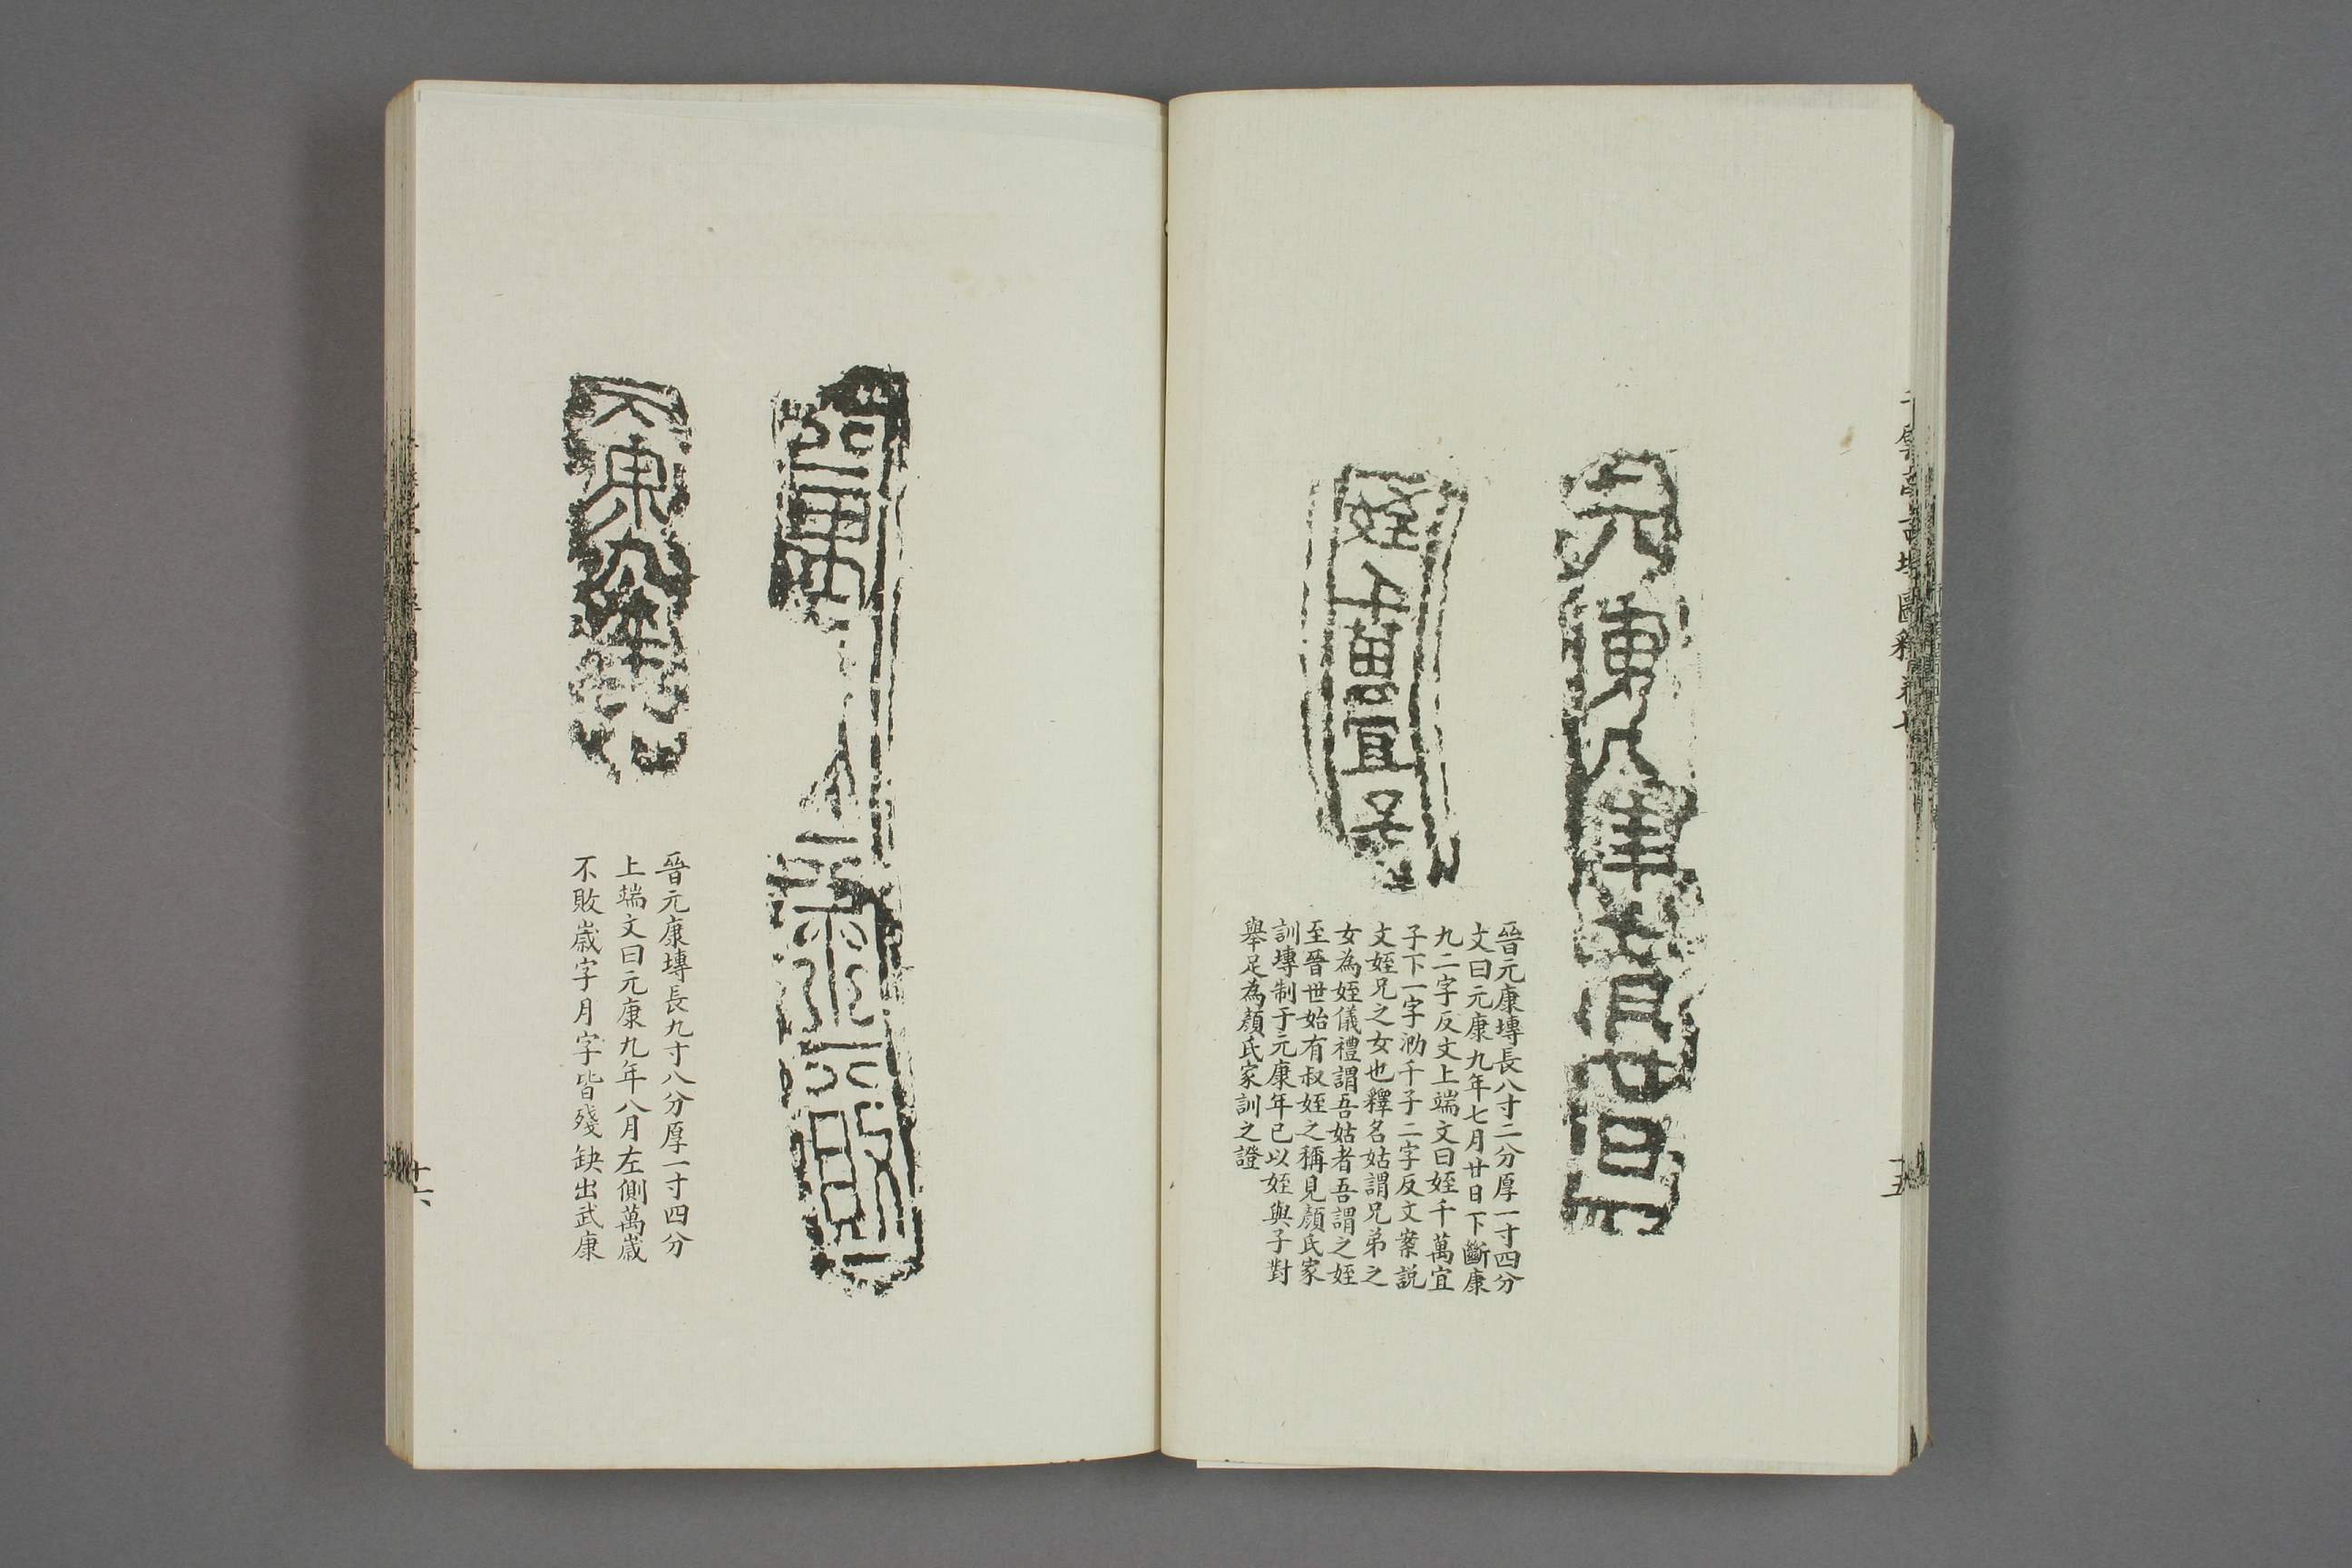 元康九年七月廿日
姪千萬宜子
晉元康塼長八寸二分厚一寸四分
文曰元康九年七月廿日下斷康
九二字反文上端文曰姪千萬宜
子下一字泐千子二字反文案説
文姪兄之女也釋名姑謂兄弟之
女為姪儀禮謂吾姑者吾謂之姪
至晉世始有叔姪之稱見顏氏家
訓塼制于元康年已以姪與子對
舉足為顏氏家訓之證
十五
元康九年
晉元康塼長九寸八分厚一寸四分
上端文曰元康九年八月左側萬歲
不敗歲字月字皆殘缺出武康
十六